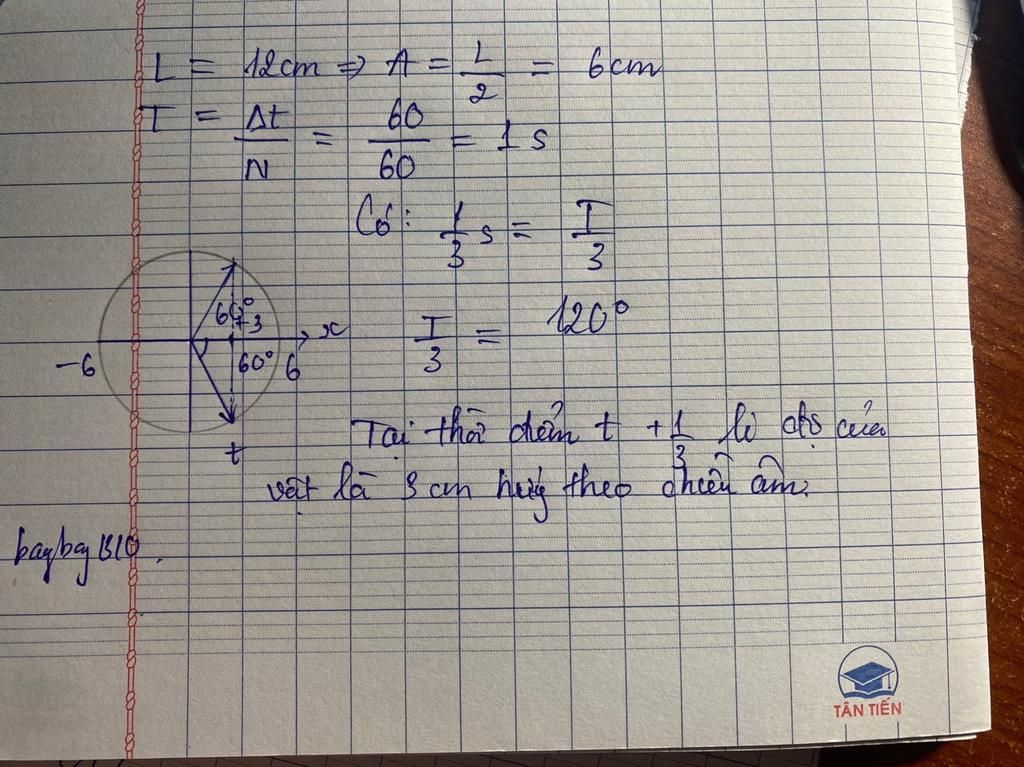 L = 12cm ⇒ A = L/2 = 6cm
T = Δt/N = 60/60 = 1s
Có: 1/3 s = T/3
60°
+3
x
-6
60°
6
t
T/3 = 120°
Tại thời điểm t + 1/3 li độ của
vật là 3 cm hướng theo chiều âm.
baybay B10.
TÂN TIẾN